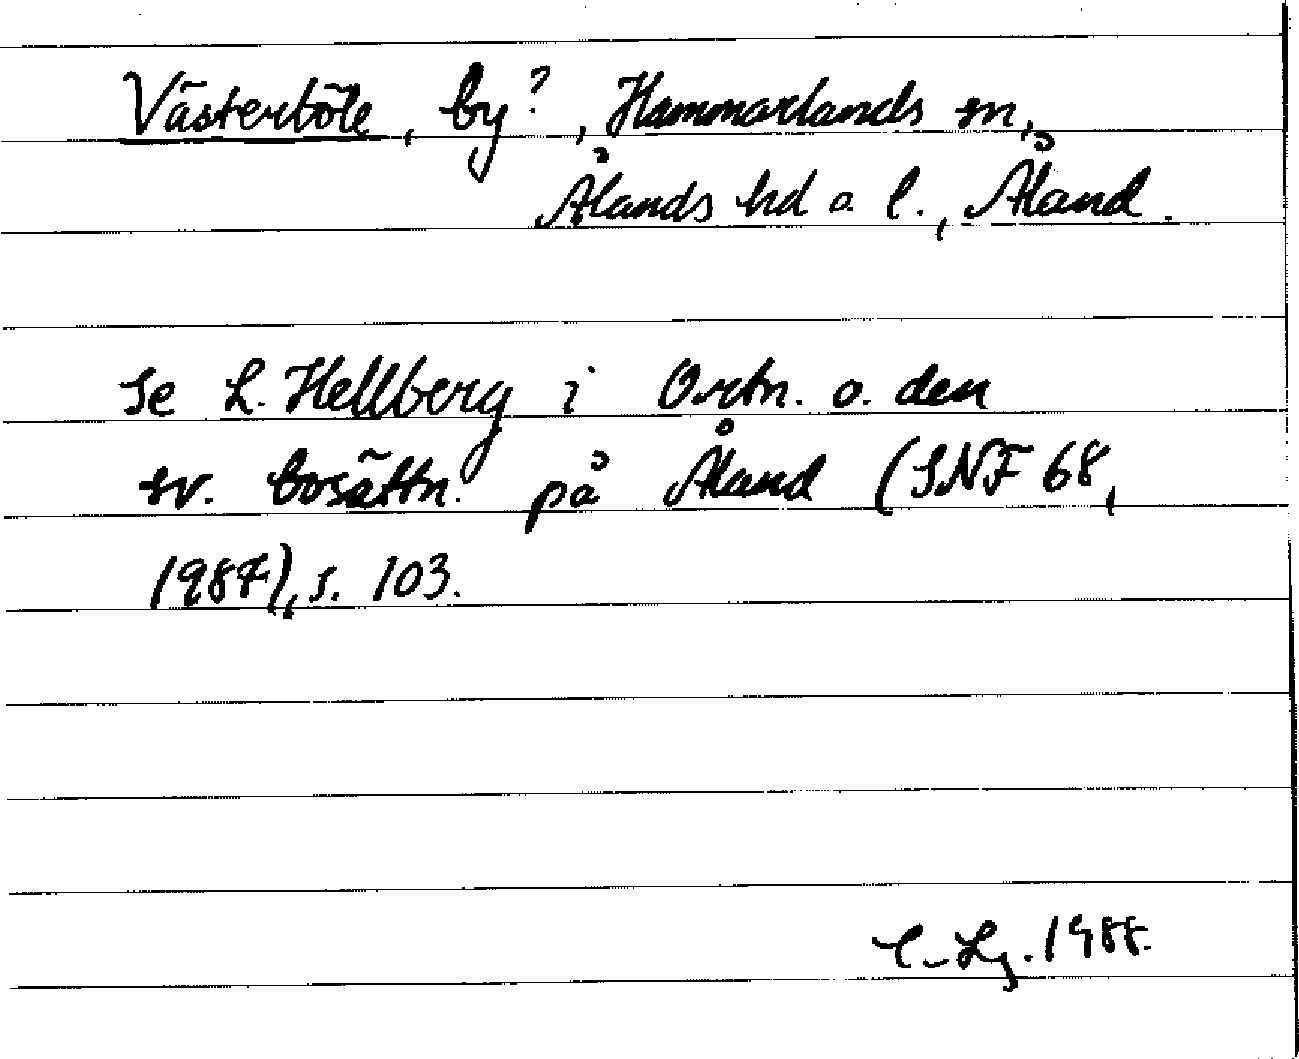 Västerböle, by?, Hammarlands sn,
Ålands hd o. l., Åland.
Se L. Hellberg i Ortn. o. den
sv. bosättn. på Åland (SNF 68,
1987), s. 103.
C-Lg. 1988.